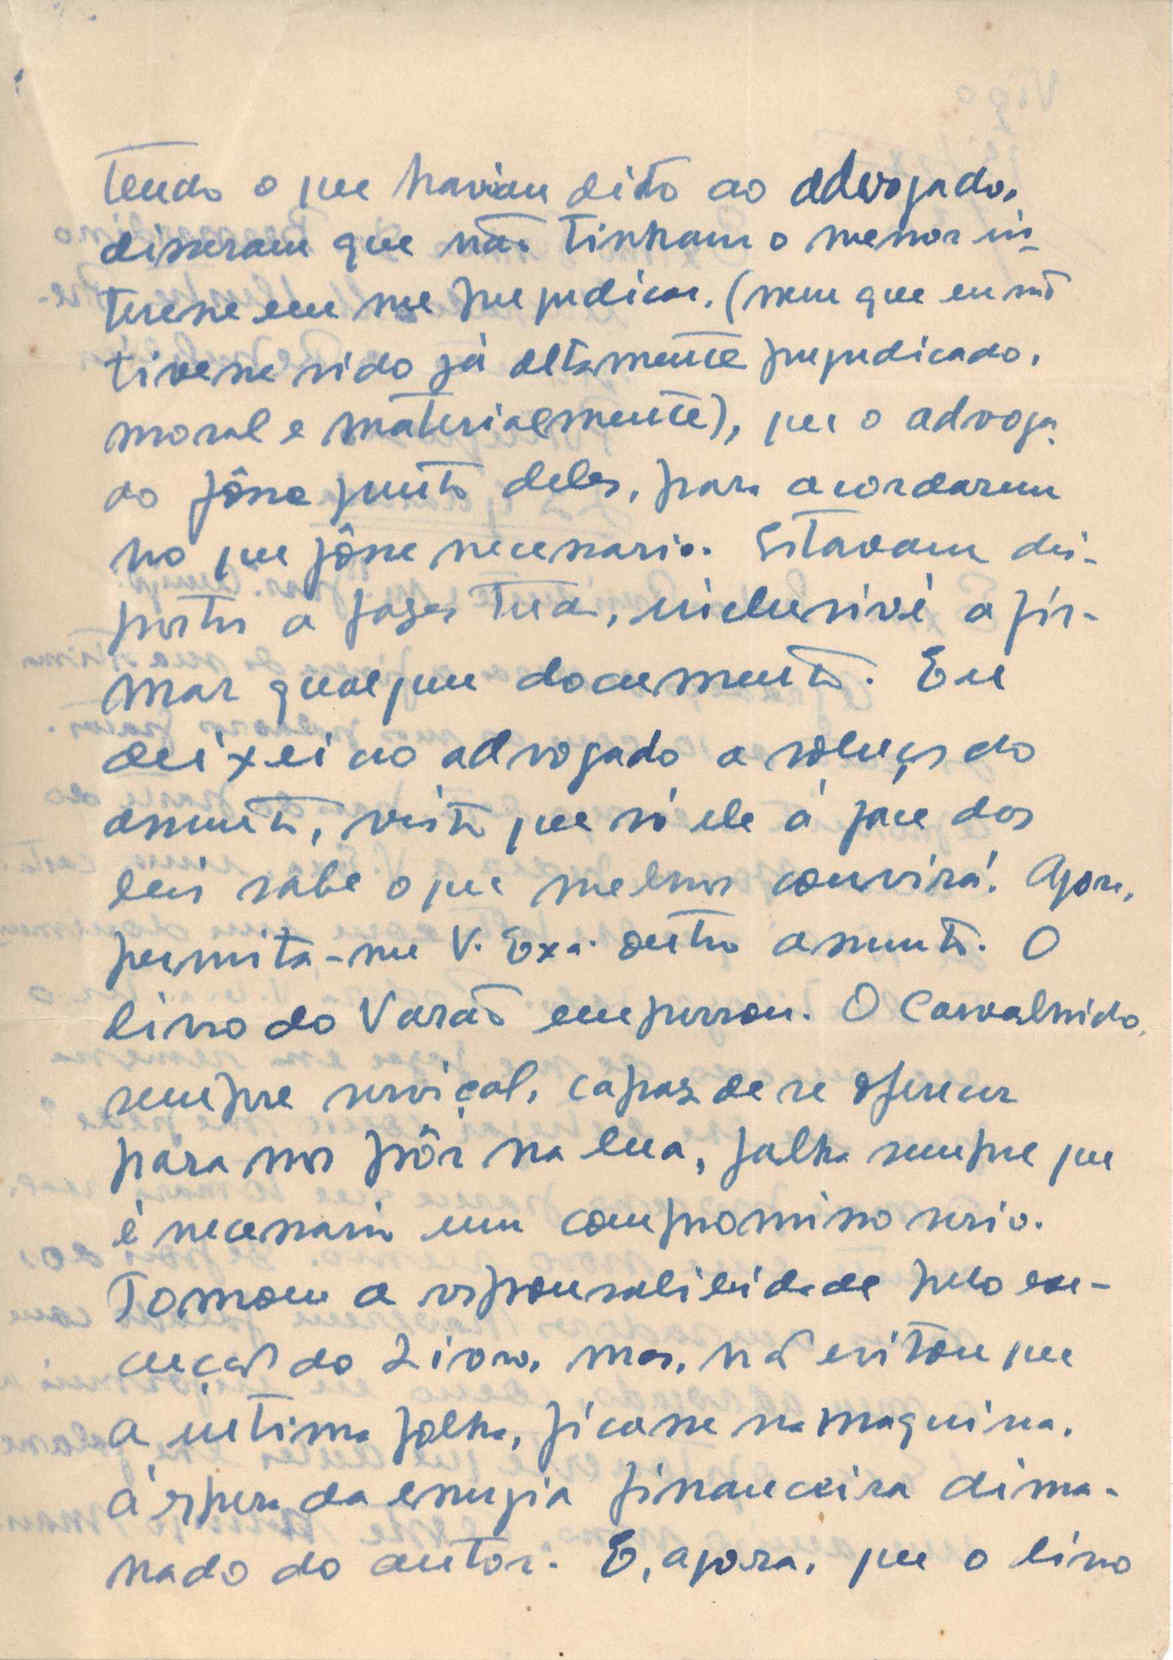 tendo o que haviam dito ao advogado,
disseram que não tinham o menor in-
teresse em me prejudicar, (sem que eu não
tivesse sido já altamente prejudicado,
moral e materialmente), que o advoga
do fôsse junto deles, para acordarem
no que fôsse necessario. Estavam dis-
postos a fazer tudo, inclusivé a fir-
mar qualquer documento. Eu
deixei ao advogado a solução do
assunto, visto que só ele á face das
leis sabe o que melhor convirá. Agora,
permita-me V. Exa. outro assunto. O
livro do Varão emperrou. O Carvalhido,
sempre serviçal, capaz de se oferecer
para nos pôr na lua, falha sempre que
é necessario um compromisso serio.
Tomou a responsabilidade pela exe-
cução do Livro, mas, não evitou que
a ultima folha, ficasse na maquina,
á espera da energia financeira dima-
nado do autor. E, agora, que o livro